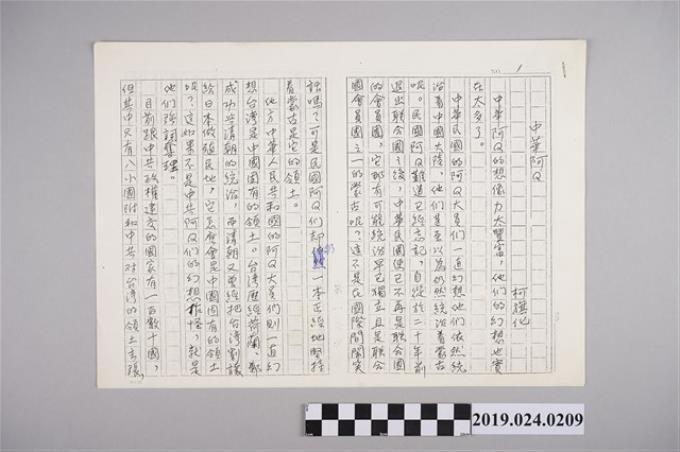 中華阿Q
柯旗化
中華阿Q的想像力太豐富,他們的幻想也實
在太多了。
中華民國的阿Q大員們一直幻想他們依然統
治著中國大陸,他們甚至以為仍然統治著蒙古
呢。民國阿Q難道已經忘記,自從於二十年前
退出聯合國之後,中華民國便已不再是聯合國
的會員國,它那有可能統治早已獨立且是聯合
國會員國之一的蒙古呢?這不是在國際間鬧笑
話嗎?可是民國阿Q們却一本正經地堅持
着蒙古是它的領土。
他方中華人民共和國的阿Q大員們則一直幻
想台灣是中國固有的領土。台灣歷經荷蘭、鄭
成功與清朝的統治,而清朝又曾經把台灣割讓
給日本做殖民地,它怎麼會是中國固有的領土
呢?這如果不是中共阿Q們的幻想作怪,就是
他們強詞奪理。
目前跟中共政權建交的國家有一百數十國,
但其中只有八小國附和中共對台灣的領土主張,
2019.024.0209